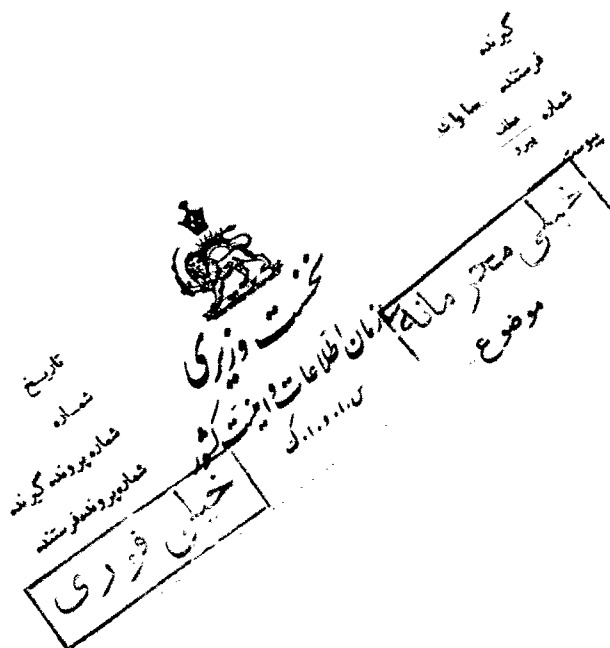 گیرنده
فرستنده ساواک
شماره
پیوست
خیلی محرمانه
موضوع
نخست وزیری
سازمان اطلاعات و امنیت کشور
س.ا.و.ا.ک
تاریخ
شماره
شماره پرونده گیرنده
شماره پرونده فرستنده
خیلی فوری